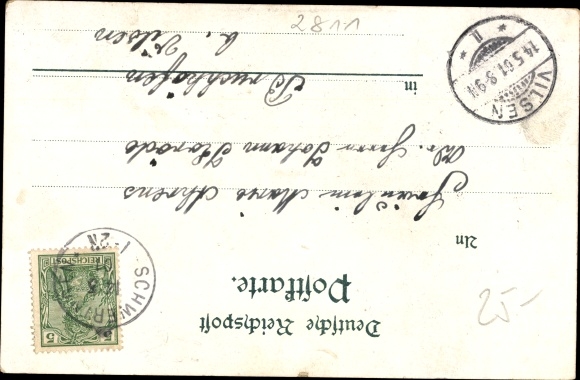 Deutsche Reichspost
Postkarte.
An
Fräulein Marie Ahrens
Adr. Herrn Johann
in Bruchhöfen
a. Vilsen
SCHWERIN
1-2N
REICHSPOST
5
5
VILSEN
14.5.01.8-9N
II
2811
25-